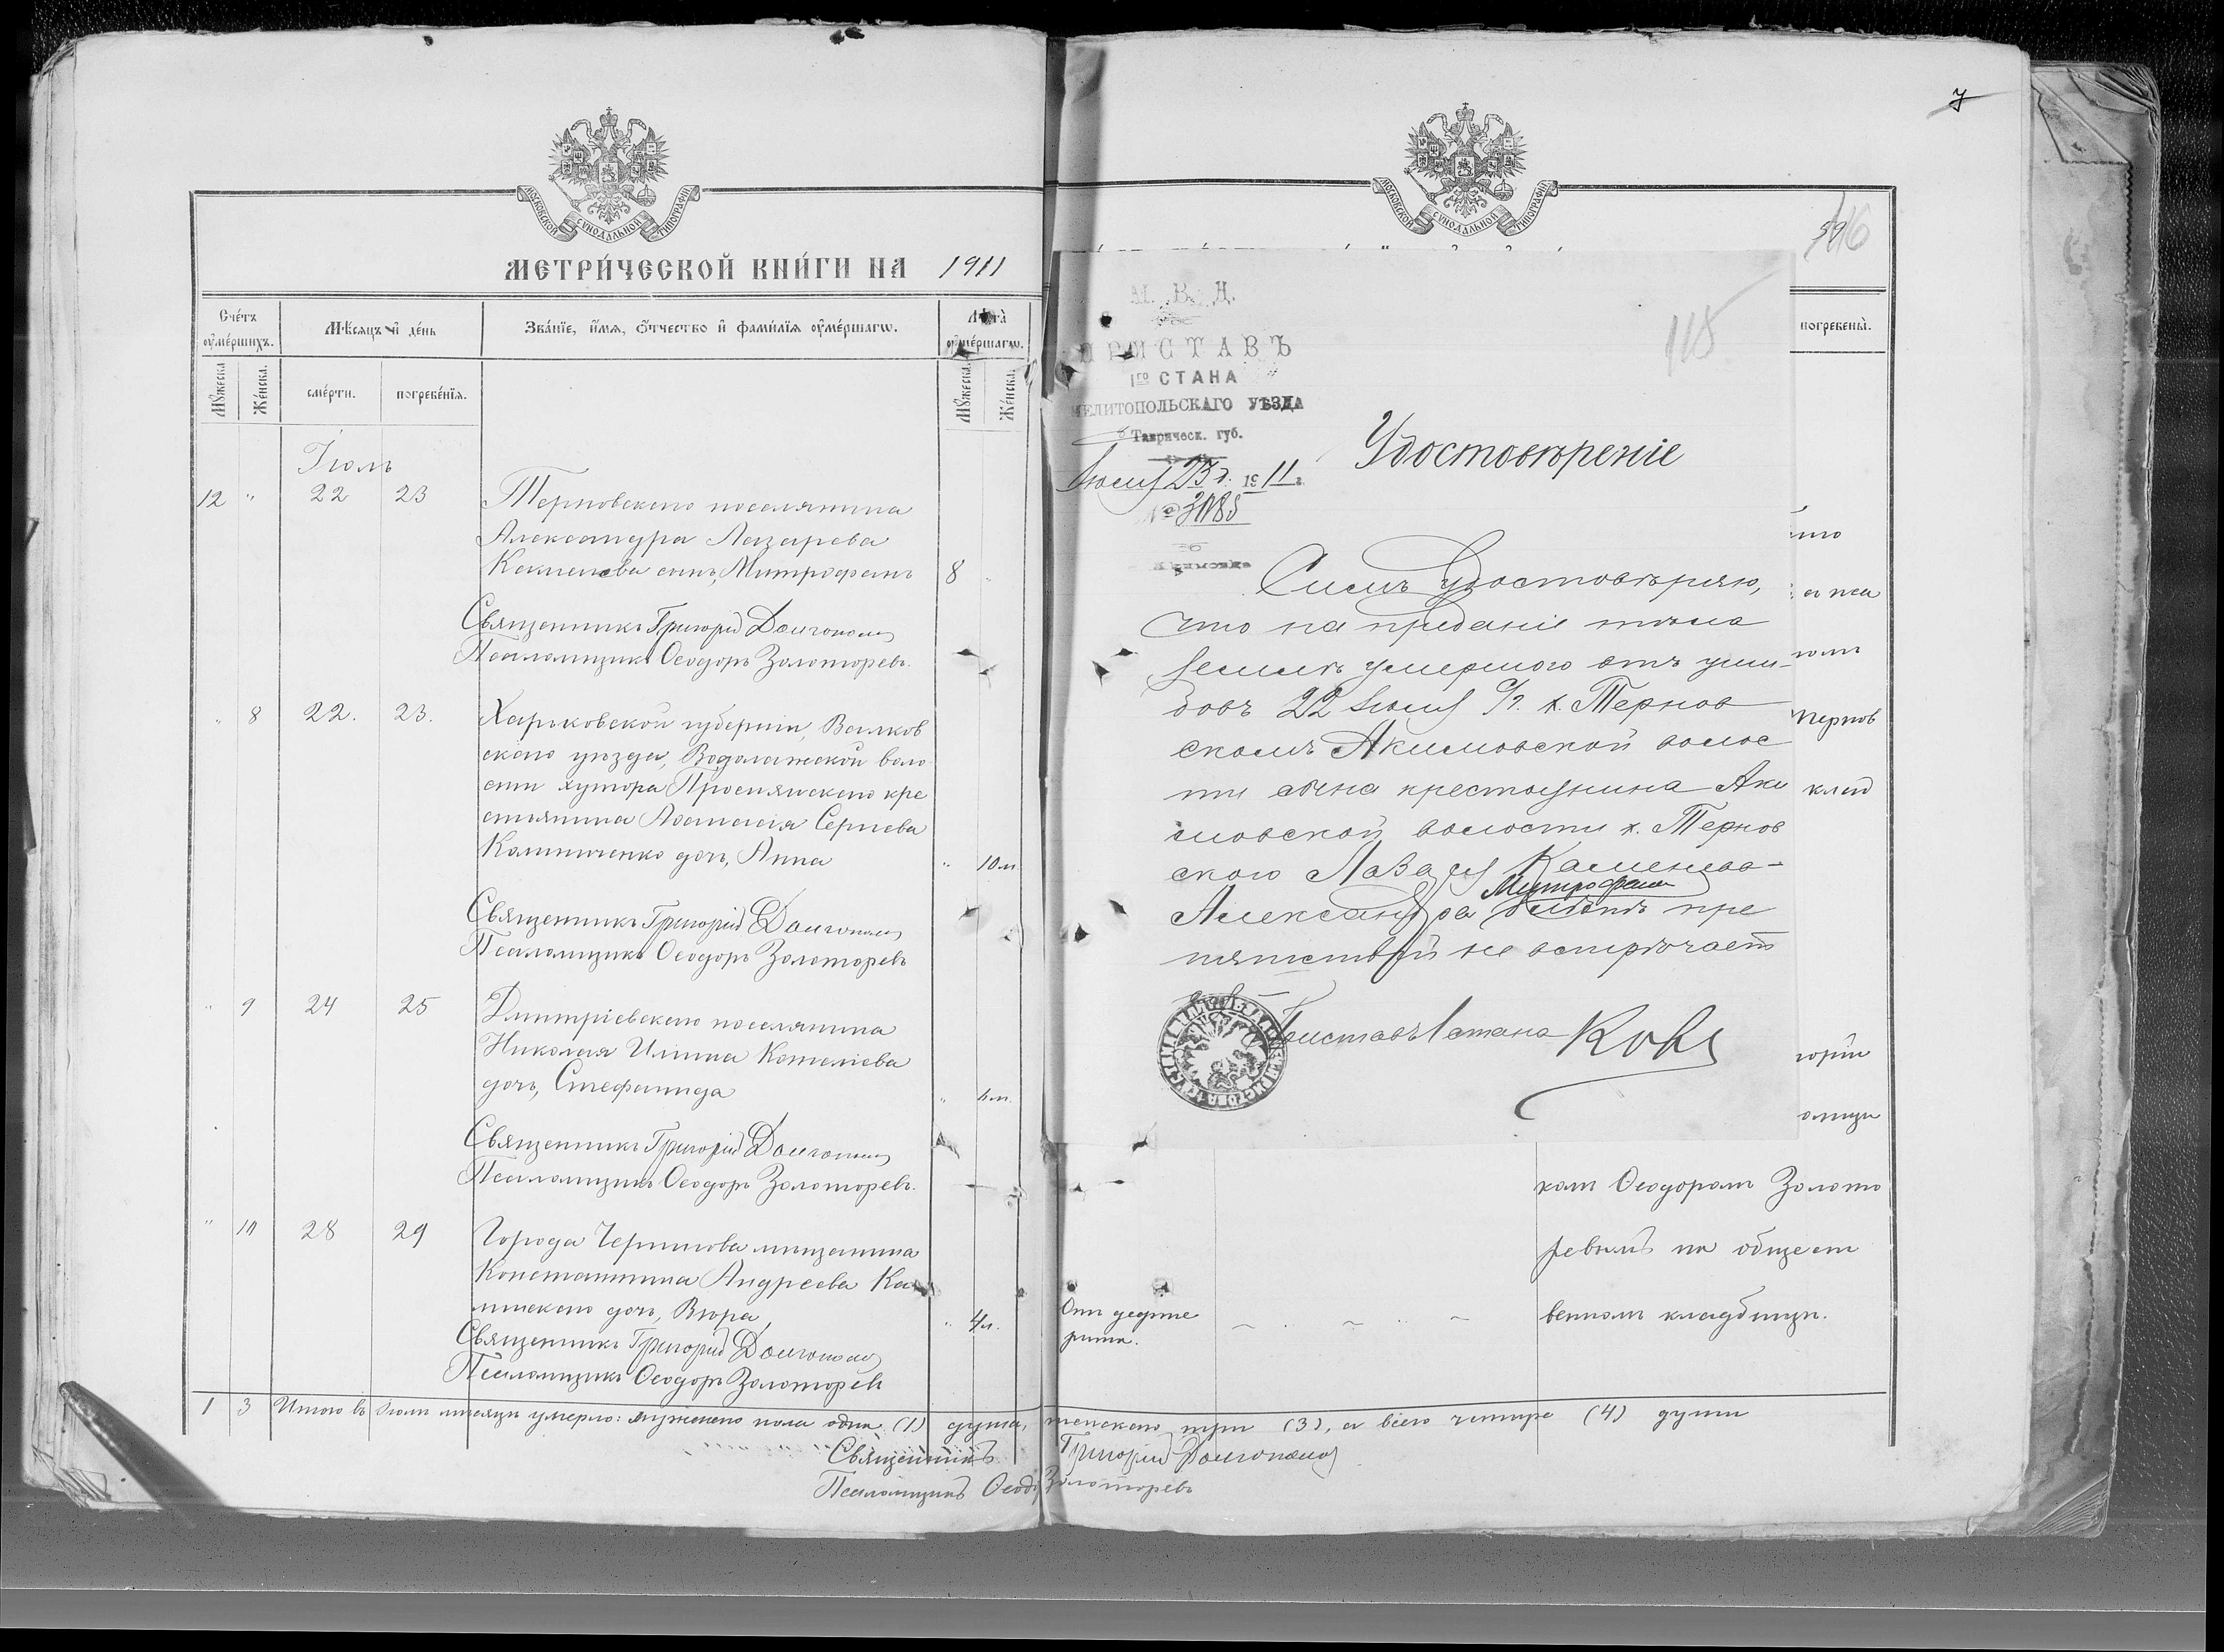 МОСКОВСКОЙ СѴНОДАЛЬНОЙ ТИПОГРАФІИ
МЕТРИ́ЧЕСКОЙ КНИ́ГИ НА 1911
Сче́тъ ᲂу҆ме́ршихъ.
Мѣ́сяцъ и҆ де́нь
Зва́нїе, и҆́мя, ѻ҆́тчество и҆ фами́лїя ᲂу҆ме́ршагѡ.
Лѣта̀ ᲂу҆ме́ршагѡ.
Мꙋ́жеска.
Же́нска.
сме́рти.
погребе́нїя.
Мꙋ́жеска.
Же́нска.
Іюль
12 " 22 23 Терновскаго поселянина
Александра Лазарева
Каменева сынъ, Митрофанъ 8 "
Священникъ Григорій Долгополов
Псаломщикъ Ѳеодоръ Золоторевъ.
" 8 22. 23. Харьковской губерніи, Валков
скаго уѣзда, Водолажской воло
сти хутора Просянскаго кре
стьянина Аѳанасія Сергѣева
Калиниченко дочь, Анна " 10 м
Священникъ Григорій Долгополов
Псаломщикъ Ѳеодоръ Золоторевъ
" 9 24 25 Дмитріевскаго поселянина
Николая Ильина
дочь, Стефанида "
Священникъ Григорій Долгополов
Псаломщикъ Ѳеодоръ Золоторевъ.
" 10 28 29 Города Чернигова мѣщанина
Константина Андреева Ка
минскаго дочь, Вѣра " 4 л.
Священникъ Григорій Долгополов
Псаломщикъ Ѳеодоръ Золоторевъ
1 3 Итого въ Іюлѣ мѣсяцѣ умерло: мужескаго пола одна (1) душа, женскаго три (3), а всего четыре (4) души
Священникъ Григорій Долгополов
Псаломщикъ Ѳеодоръ Золоторевъ
7
МОСКОВСКОЙ СѴНОДАЛЬНОЙ ТИПОГРАФІИ
погребены̀.
115
М. В. Д.
ПРИСТАВЪ
1го СТАНА
МЕЛИТОПОЛЬСКАГО УѢЗДА
Таврическ. губ.
Іюля 23 д. 1911 г.
№ 3185
Удостовѣреніе
Симъ удостовѣряю,
что на преданіе тѣла
землѣ умершого отъ уши-
бовъ 22 Іюля с/г. х. Тернов
скомъ Акимовской волос
ти сына крестьянина Аки
мовской волости х. Тернов
ского Лазаря Каменева-
Митрофана
Александра пре
пятствій не встрѣчает
Приставъ 1 стана
Тернов
клад
горіи
омщи
комъ Ѳеодоромъ Золото
ревымъ на общест
Отъ дифте
рита.
венномъ кладбищѣ.